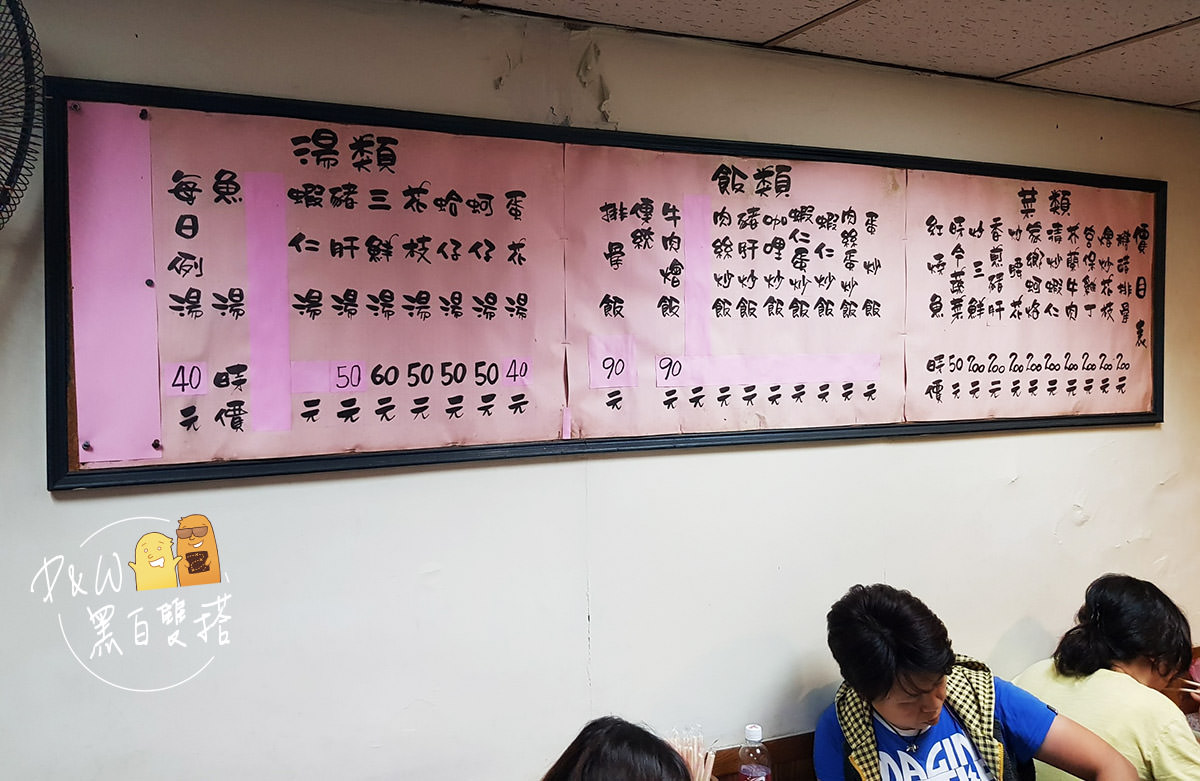 價目表
菜類
排骨 200元
炒花枝 200元
宮保雞丁 200元
芥蘭牛肉 200元
清炒蝦仁 200元
蚵仔 200元
炒腰花 200元
香煎豬肝 200元
炒三鮮 200元
時令蔬菜 50元
紅燒魚 時價
飯類
蛋炒飯 元
肉絲蛋炒飯 元
蝦仁炒飯 元
蝦仁蛋炒飯 元
咖哩炒飯 元
豬肝炒飯 元
肉絲炒飯 元
牛肉燴飯 90元
傳統排骨飯 90元
湯類
蛋花湯 40元
蚵仔湯 50元
蛤仔湯 50元
花枝湯 50元
三鮮湯 60元
豬肝湯 50元
蝦仁湯 元
魚湯 時價
每日例湯 40元
P&W
黑白雙搭